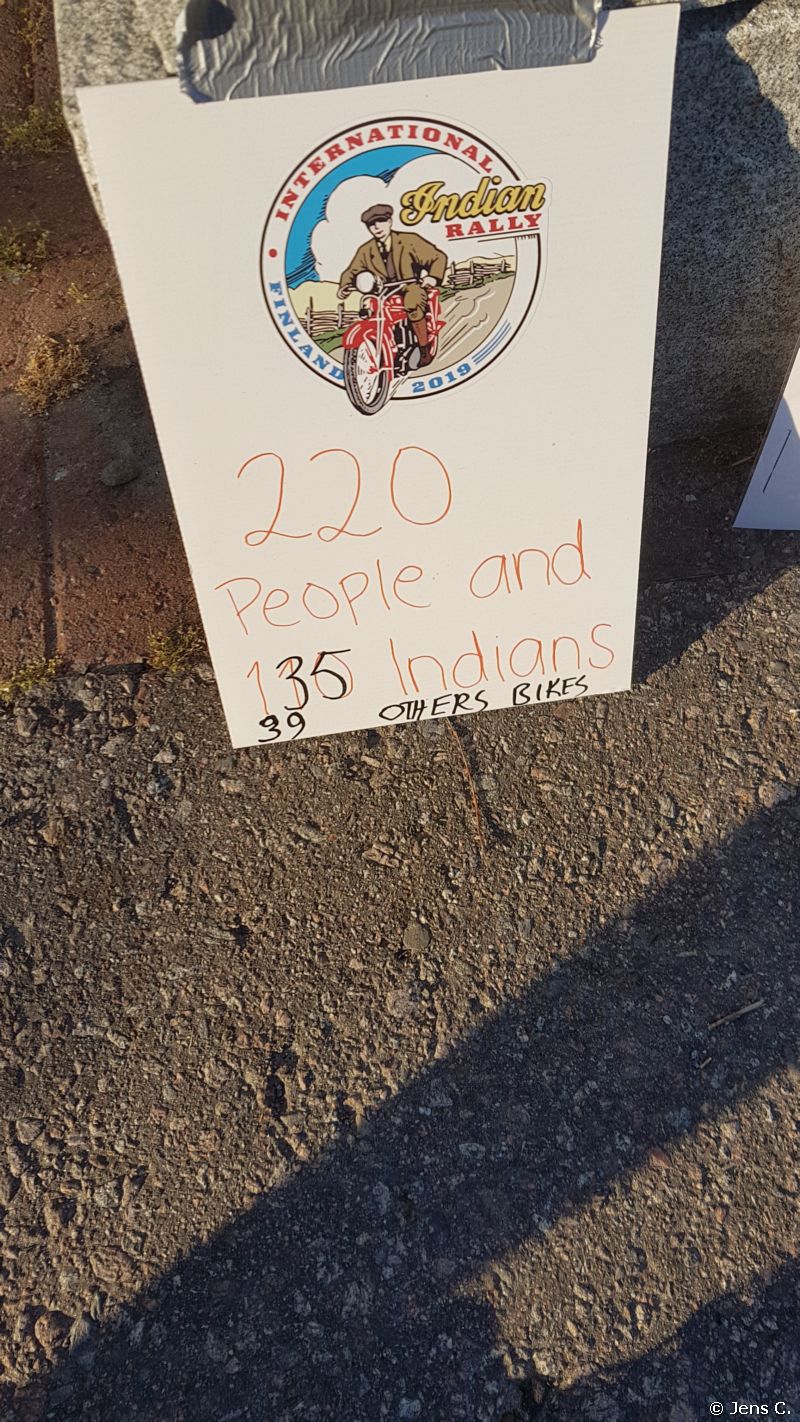 INTERNATIONAL
Indian
RALLY
FINLAND
2019
220
People and
135 Indians
39 OTHERS BIKES
© Jens C.